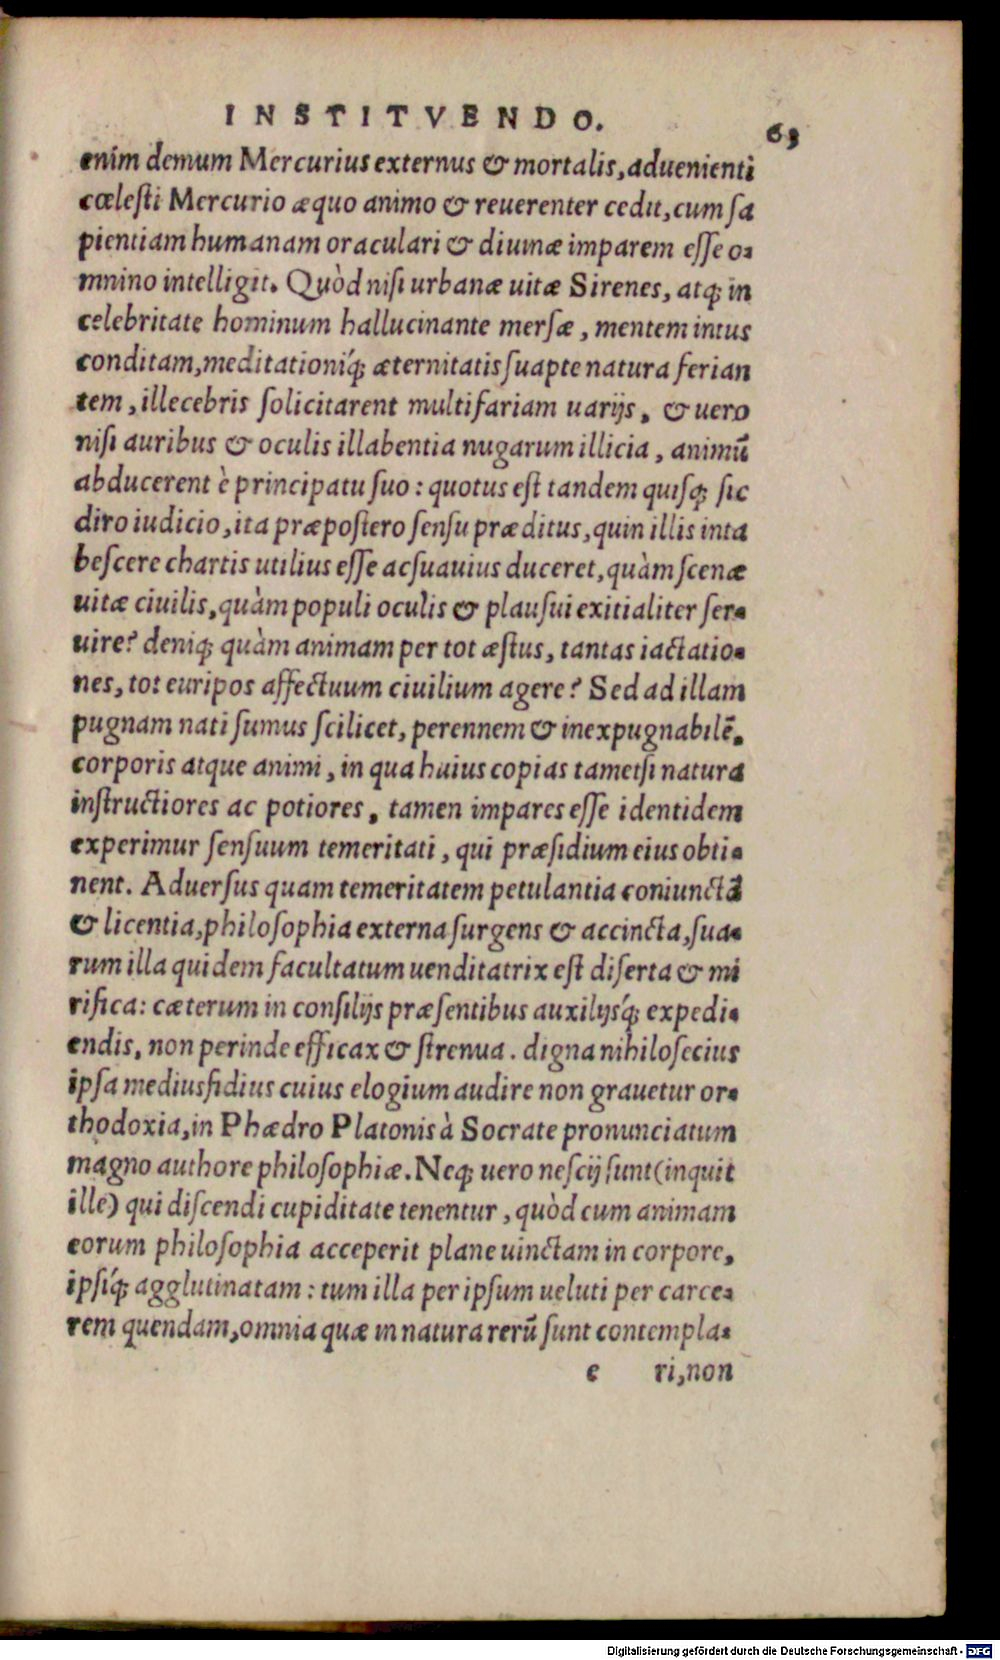 INSTITVENDO.
63
enim demum Mercurius externus & mortalis, aduenienti
cœlesti Mercurio æquo animo & reuerenter cedit, cum sa
pientiam humanam oraculari & diuinæ imparem esse o-
mnino intelligit. Quòd nisi urbanæ uitæ Sirenes, atq; in
celebritate hominum hallucinante mersæ, mentem intus
conditam, meditationíq; æternitatis suapte natura ferian
tem, illecebris solicitarent multifariam uarijs, & uero
nisi auribus & oculis illabentia nugarum illicia, animũ
abducerent è principatu suo: quotus est tandem quisq; sic
diro iudicio, ita præpostero sensu præditus, quin illis inta
bescere chartis utilius esse ac suauius duceret, quàm scenæ
uitæ ciuilis, quàm populi oculis & plausui exitialiter ser-
uire? deniq; quàm animam per tot æstus, tantas iactatio-
nes, tot euripos affectuum ciuilium agere? Sed ad illam
pugnam nati sumus scilicet, perennem & inexpugnabilẽ,
corporis atque animi, in qua huius copias tametsi natura
instructiores ac potiores, tamen impares esse identidem
experimur sensuum temeritati, qui præsidium eius obti-
nent. Aduersus quam temeritatem petulantia coniunctã
& licentia, philosophia externa surgens & accincta, sua-
rum illa quidem facultatum uenditatrix est diserta & mi
rifica: cæterum in consilijs præsentibus auxilijsq́; expedi-
endis, non perinde efficax & strenua. digna nihilosecius
ipsa mediusfidius cuius elogium audire non grauetur or-
thodoxia, in Phædro Platonis à Socrate pronunciatum
magno authore philosophiæ. Neq; uero nescij sunt (inquit
ille) qui discendi cupiditate tenentur, quòd cum animam
eorum philosophia acceperit plane uinctam in corpore,
ipsíq; agglutinatam: tum illa per ipsum ueluti per carce-
rem quendam, omnia quæ in natura rerũ sunt contempla-
e ri, non
Digitalisierung gefördert durch die Deutsche Forschungsgemeinschaft - DFG